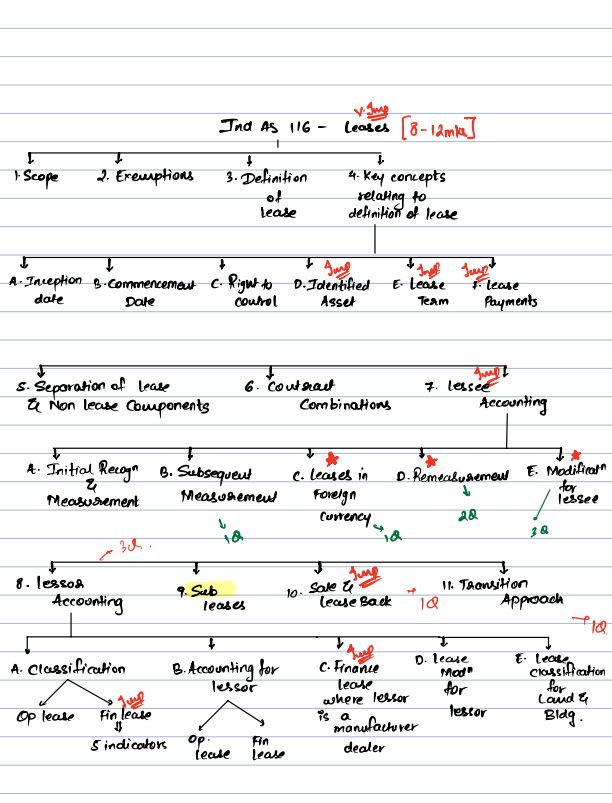 V. Imp
Ind AS 116 - Leases [8-12mks]
1. Scope 2. Exemptions 3. Definition of lease 4. Key concepts relating to definition of lease
Imp Imp Imp
A. Inception date B. Commencement Date C. Right to control D. Identified Asset E. Lease Term F. Lease Payments
Imp
5. Separation of lease & Non lease Components 6. Contract Combinations 7. lessee Accounting
A. Initial Recogn & Measurement B. Subsequent Measurement C. leases in Foreign currency D. Remeasurement E. Modificatn for lessee
1Q 1Q 2Q 3Q
3Q.
Imp
8. lessor Accounting 9. Sub leases 10. Sale & Lease Back 11. Transition Approach
1Q 1Q
Imp
A. Classification B. Accounting for lessor C. Finance lease where lessor is a manufacturer dealer D. lease Modn for lessor E. Lease classification for Land & Bldg.
Imp
Op lease Fin lease
5 indicators
Op. lease Fin lease